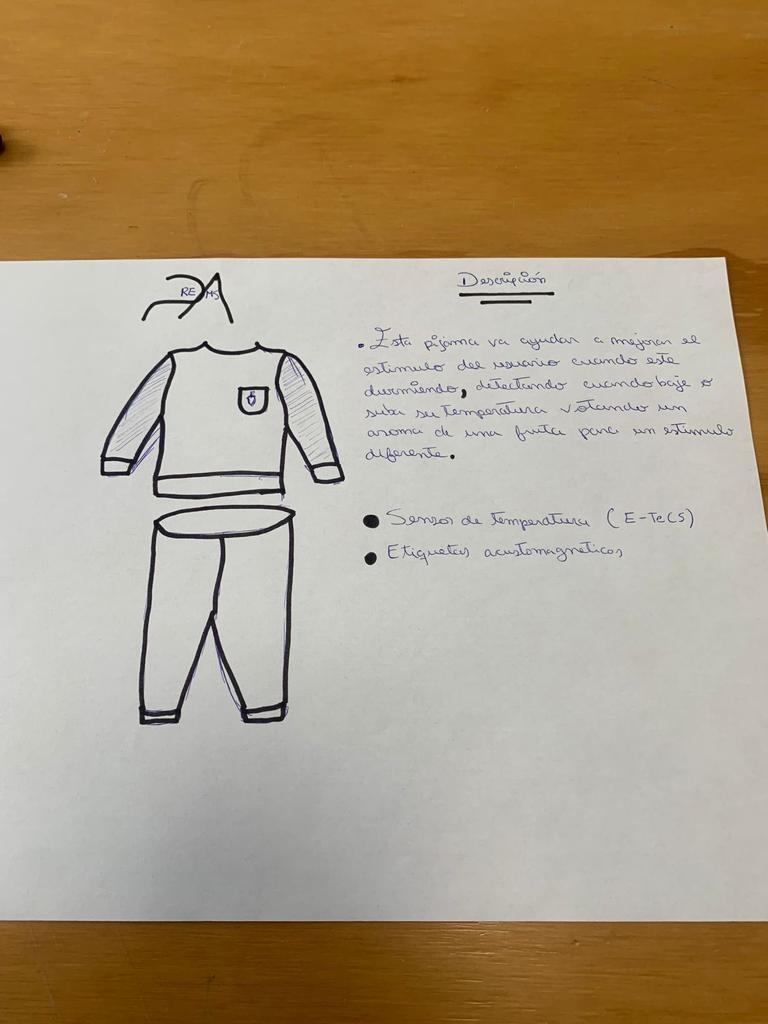 REMS
Descripción
• Esta pijama va ayudar a mejorar el
estimulo del usuario cuando este
durmiendo, detectando cuando baje o
suba su temperatura votando un
aroma de una fruta para un estimulo
diferente.
• Sensor de temperatura (E-TeCS)
• Etiquetas acustomagneticos